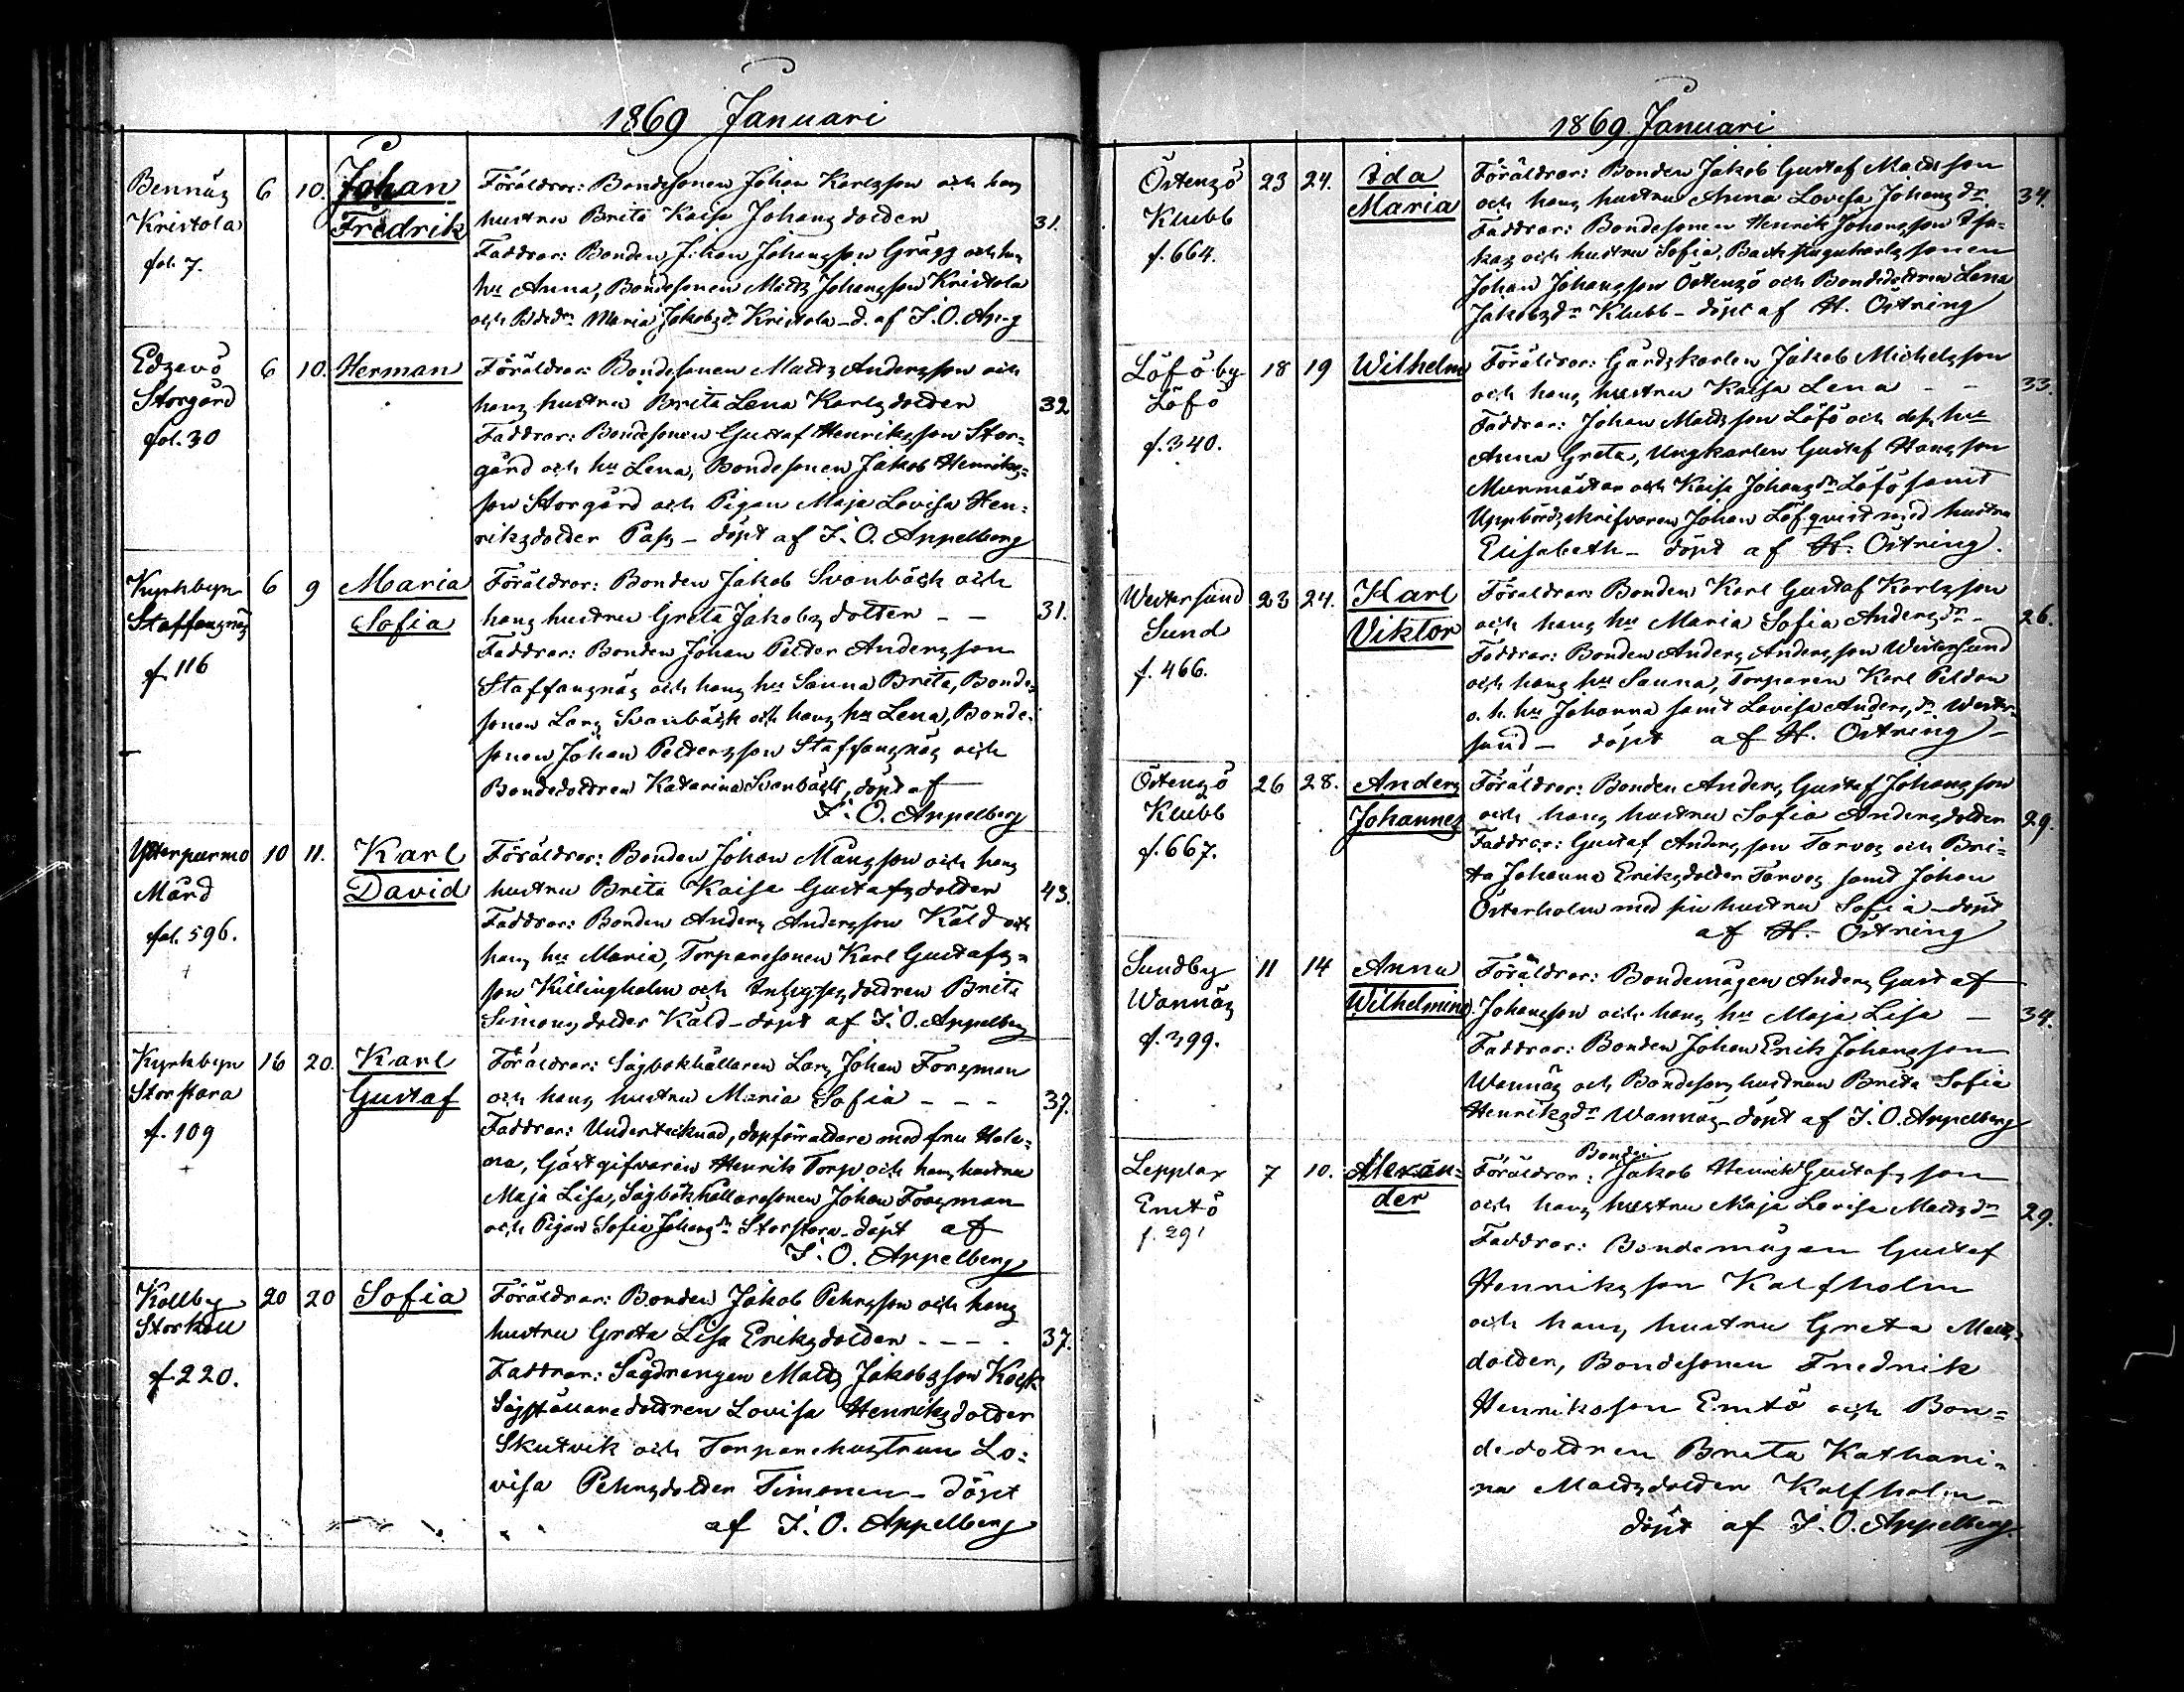 1869 Januari
Bennäs 6 10. Johan Föräldrar: Bondesonen Johan Karlsson och hans
Kristola Fredrik hustru Brita Kaisa Johansdotter 31.
fol. 7. Faddrar: Bonden Johan Johansson Grägg och hans
hu Anna, Bondesonen Matts Johansson Kristola
och Bdedn Maria Jakobsdr Kristola - d. af I. O. Apg
Edsevö 6 10. Herman Föräldrar: Bondesonen Matts Andersson och
Storgård hans hustru Brita Lena Karlsdotter 32
fol. 30 Faddrar: Bondesonen Gustaf Henriksson Stor=
gård och hu Lena, Bondesonen Jakob Henriks=
son Storgård och Pigan Maja Lovisa Hen=
riksdotter Pass - döpt af I. O. Appelberg
Kyrkbyn 6 9 Maria Föräldrar: Bonden Jakob Svanbäck och
Staffansnäs Sofia hans hustru Greta Jakobsdotter - - 31.
f. 116 Faddrar: Bonden Johan Petter Andersson
Staffansnäs och hans hu Sanna Brita, Bonde=
sonen Lars Svanbäck och hans hu Lena, Bonde=
sonen Johan Pettersson Staffansnäs och
Bondedottren Katarina Svanbäck, döpt af
I. O. Appelberg
Ytterpurmo 10 11. Karl Föräldrar: Bonden Johan Månsson och hans
Mård David hustru Brita Kaisa Gustafsdotter 43.
fol. 596. Faddrar: Bonden Anders Andersson Käld och
hans hu Maria, Torparesonen Karl Gustafs=
son Killingholm och Inhysesdottren Brita
Simonsdotter Käld - döpt af I. O. Appelberg
Kyrkbyn 16 20. Karl Föräldrar: Sågbokhållaren Lars Johan Forsman
Storstara Gustaf och hans hustru Maria Sofia - - - 37.
f. 109 Faddrar: Undertecknad, dopförrättare med fru Hele=
na, Gästgifvaren Henrik Torp och hans hustru
Maja Lisa, Sågbokhållaresonen Johan Forsman
och Pigan Sofia Johansdr Storstara - döpt af
I. O. Appelberg
Kållby 20 20 Sofia Föräldrar: Bonden Jakob Pehrsson och hans
Storkåll hustru Greta Lisa Eriksdotter - - - - 37.
f. 220. Faddrar: Sågdrengen Matts Jakobsson Kack
Sågställaredottren Lovisa Henriksdotter
Skutvik och Torparehustrun Lo=
visa Pehrsdotter Timonen - döpt
af I. O. Appelberg
1869 Januari
Östensö 23 24. Ida Föräldrar: Bonden Jakob Gustaf Mattsson
Klubb Maria och hans hustru Anna Lovisa Johansdr 34.
f. 664. Faddrar: Bondesonen Henrik Johansson
och hustru Sofia,
Johan Johansson Östensö och Bondedottren Lena
Jakobsdr Klubb - döpt af H. Östring
Löfö by 18 19 Wilhelm Föräldrar: Gårdskarlen Jakob Michelsson
Löfö och hans hustru Kaisa Lena - - 33.
f. 340. Faddrar: Johan Mattsson Löfö och dess hu
Anna Greta, Ungkarlen Gustaf Hansson
Murmästar och Kaisa Johansdr Löfö samt
Uppbördsskrifvaren Johan Löfqvist med hustru
Elisabeth - döpt af H. Östring.
Westersund 23 24. Karl Föräldrar: Bonden Karl Gustaf Karlsson
Sund Viktor och hans hu Maria Sofia Andersdr - 26.
f. 466. Faddrar: Bonden Anders Andersson Westersund
och hans hu Sanna, Torparen Karl Peldan
o. h. hu Johanna samt Lovisa Andersdr Wester=
sund - döpt af H. Östring -
Östensö 26 28. Anders Föräldrar: Bonden Anders Gustaf Johansson
Klubb Johannes och hans hustru Sofia Andersdotter 29.
f. 667. Faddrar: Gustaf Andersson Forvos och Bri=
ta Johanna Eriksdotter Forvos samt Johan
Österholm med sin hustru Sofia - döpt
af H. Östring
Sundby 11 14 Anna Föräldrar: Bondemågen Anders Gustaf
Wannäs Wilhelmina Johansson och hans hu Maja Lisa - 34.
f. 399. Faddrar: Bonden Johan Erik Johansson
Wannäs och Bondesonshustrun Brita Sofia
Henriksdr Wannäs - döpt af I. O. Appelberg
Lepplax 7 10. Alexan= Föräldrar: Bonden Jakob Henrik Gustafsson
Emtö der och hans hustru Maja Lovisa Mattsdr 29.
f. 291 Faddrar: Bondemågen Gustaf
Henriksson Kalfholm
och hans hustru Greta Matts=
dotter, Bondesonen Fredrik
Henriksson Emtö och Bon=
dedottren Brita Kathari=
na Mattsdotter Kalfholm -
döpt af I. O. Appelberg.